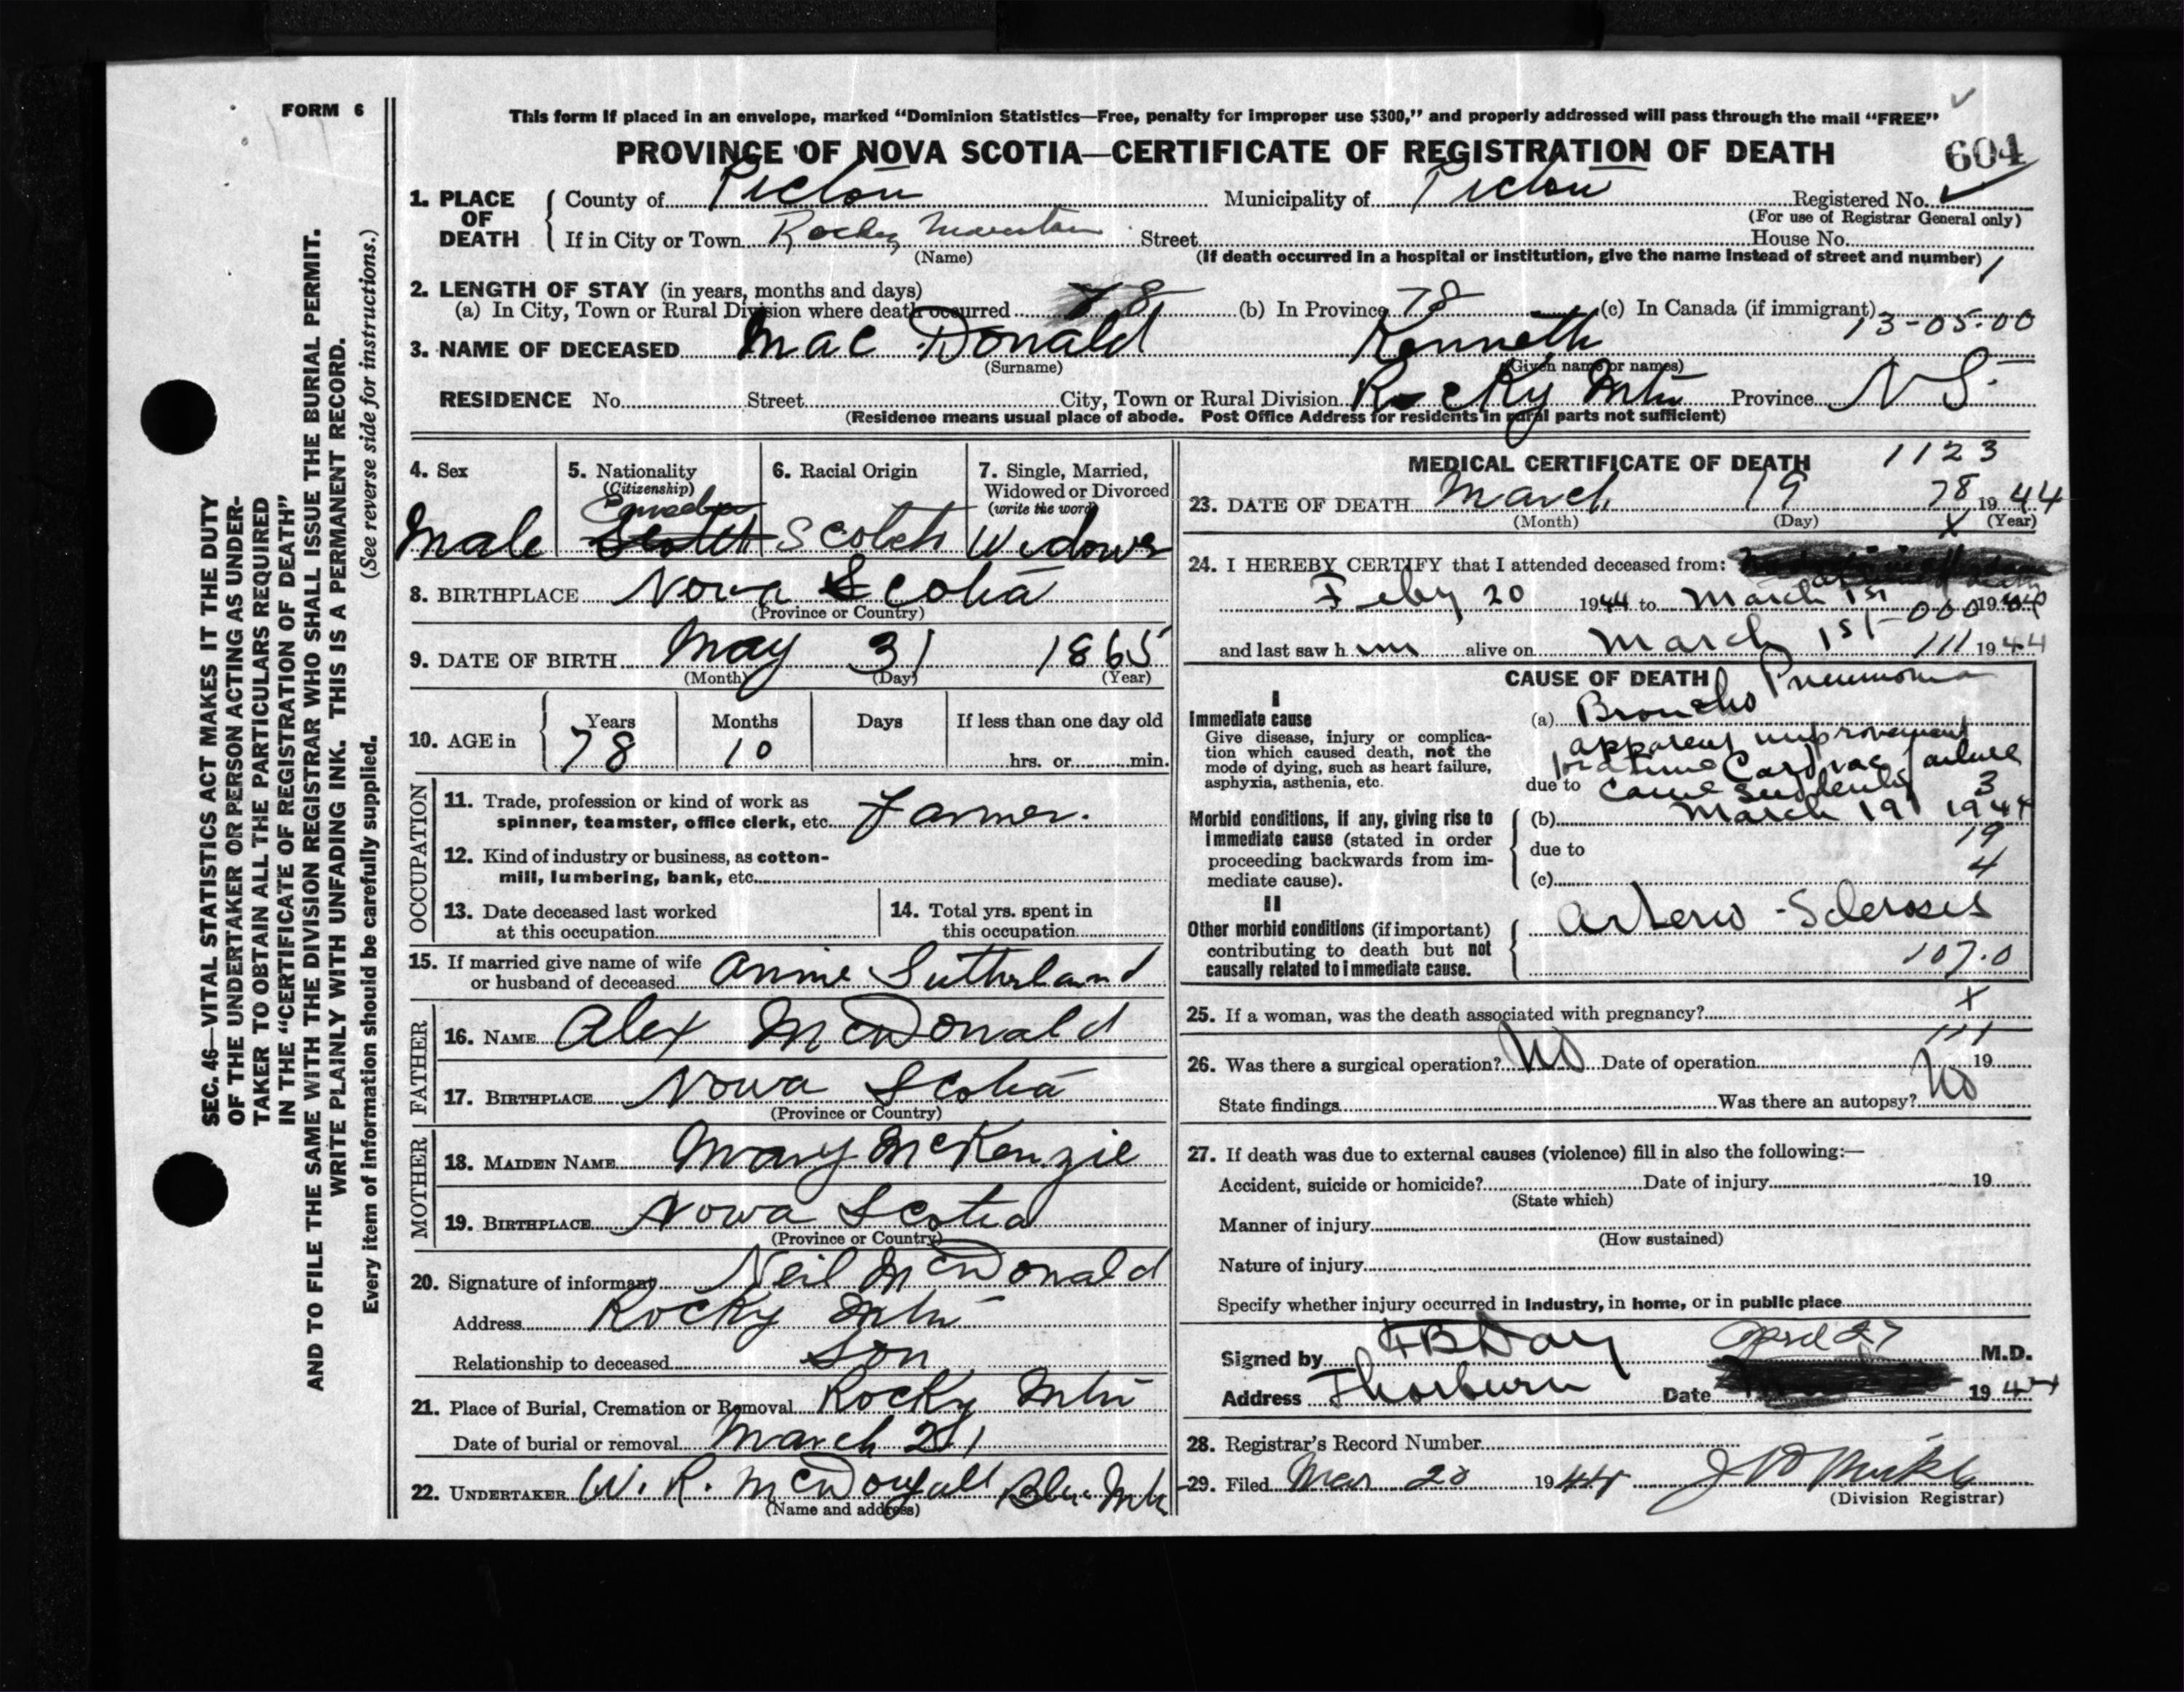 FORM 6
This form if placed in an envelope, marked “Dominion Statistics—Free, penalty for improper use $300,” and properly addressed will pass through the mail “FREE”
PROVINCE OF NOVA SCOTIA—CERTIFICATE OF REGISTRATION OF DEATH
604
1. PLACE OF DEATH
County of Pictou Municipality of Pictou Registered No.
(For use of Registrar General only)
If in City or Town Rocky Mountain Street House No.
(Name) (If death occurred in a hospital or institution, give the name instead of street and number) 1
2. LENGTH OF STAY (in years, months and days)
(a) In City, Town or Rural Division where death occurred 78 (b) In Province 78 (c) In Canada (if immigrant)
13-05-00
3. NAME OF DECEASED Mac Donald Kenneth
(Surname) (Given name or names)
RESIDENCE No. Street City, Town or Rural Division Rocky Mtn Province N S.
(Residence means usual place of abode. Post Office Address for residents in rural parts not sufficient)
4. Sex
Male
5. Nationality
(Citizenship)
Scotch
6. Racial Origin
Scotch
7. Single, Married,
Widowed or Divorced
(write the word)
Widower
8. BIRTHPLACE Nova Scotia
(Province or Country)
9. DATE OF BIRTH May 31 1865
(Month) (Day) (Year)
10. AGE in
Years Months Days If less than one day old
78 10 hrs. or min.
OCCUPATION
11. Trade, profession or kind of work as
spinner, teamster, office clerk, etc. Farmer.
12. Kind of industry or business, as cotton-
mill, lumbering, bank, etc.
13. Date deceased last worked
at this occupation
14. Total yrs. spent in
this occupation
15. If married give name of wife
or husband of deceased Annie Sutherland
FATHER
16. NAME Alex McDonald
17. BIRTHPLACE Nova Scotia
(Province or Country)
MOTHER
18. MAIDEN NAME Mary McKenzie
19. BIRTHPLACE Nova Scotia
(Province or Country)
20. Signature of informant Neil McDonald
Address Rocky Mtn
Relationship to deceased Son
21. Place of Burial, Cremation or Removal Rocky Mtn
Date of burial or removal March 21
22. UNDERTAKER W. R. McDougall Blue Mtn
(Name and address)
MEDICAL CERTIFICATE OF DEATH 1123
23. DATE OF DEATH March 19 78 1944
(Month) (Day) (Year)
x
24. I HEREBY CERTIFY that I attended deceased from:
Feby 20 1944 to March 1st 000 1944
and last saw h im alive on March 1st 111 1944
CAUSE OF DEATH
I
Immediate cause
Give disease, injury or complica-
tion which caused death, not the
mode of dying, such as heart failure,
asphyxia, asthenia, etc.
(a) Broncho Pneumonia
apparent improvement
for a time Cardiac failure
due to came suddenly 3
Morbid conditions, if any, giving rise to
immediate cause (stated in order
proceeding backwards from im-
mediate cause).
(b) March 19 1944
19
due to
4
(c)
II
Other morbid conditions (if important)
contributing to death but not
causally related to immediate cause.
Arterio-Sclerosis
107.0
25. If a woman, was the death associated with pregnancy? x
111
26. Was there a surgical operation? No Date of operation 19
State findings Was there an autopsy? No
27. If death was due to external causes (violence) fill in also the following:—
Accident, suicide or homicide? Date of injury 19
(State which)
Manner of injury
(How sustained)
Nature of injury
Specify whether injury occurred in industry, in home, or in public place
Signed by Day April 27 M.D.
Address Thorburn Date 1944
28. Registrar's Record Number
29. Filed Mar 20 1944
(Division Registrar)
SEC. 46—VITAL STATISTICS ACT MAKES IT THE DUTY
OF THE UNDERTAKER OR PERSON ACTING AS UNDER-
TAKER TO OBTAIN ALL THE PARTICULARS REQUIRED
IN THE “CERTIFICATE OF REGISTRATION OF DEATH”
AND TO FILE THE SAME WITH THE DIVISION REGISTRAR WHO SHALL ISSUE THE BURIAL PERMIT.
WRITE PLAINLY WITH UNFADING INK. THIS IS A PERMANENT RECORD.
Every item of information should be carefully supplied. (See reverse side for instructions.)